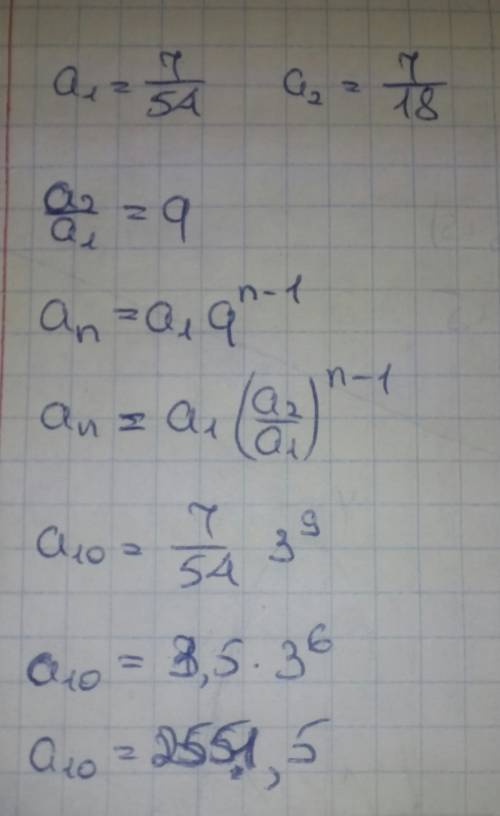 a₁ = 7/54 a₂ = 7/18
a₂/a₁ = q
aₙ = a₁ qⁿ⁻¹
aₙ = a₁ (a₂/a₁)ⁿ⁻¹
a₁₀ = 7/54 3⁹
a₁₀ = 3,5 · 3⁶
a₁₀ = 2551,5